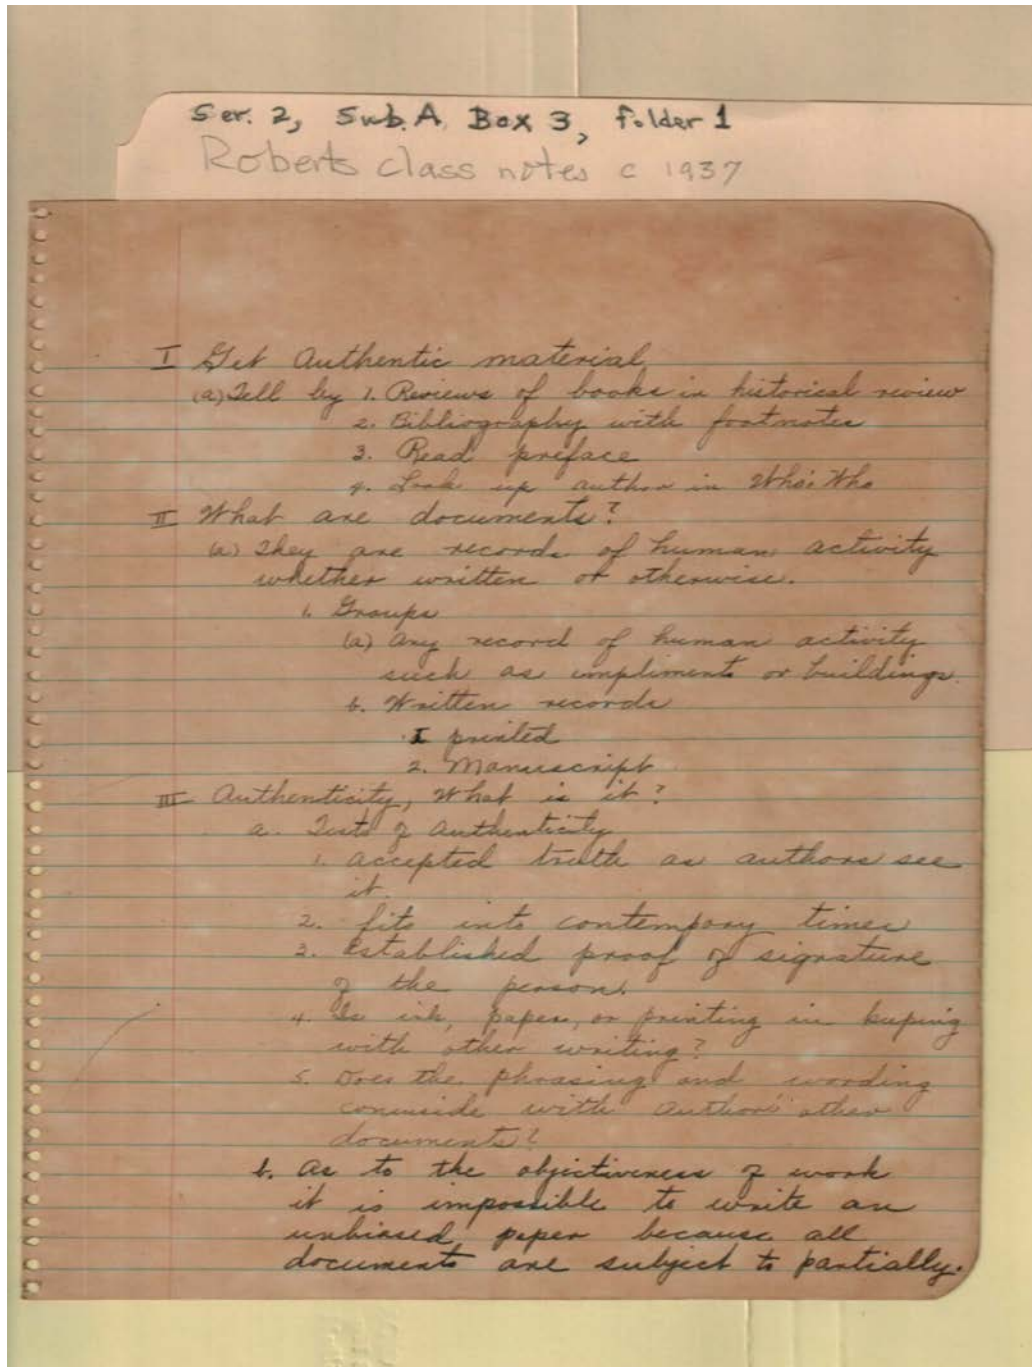 Ser. 2, Sub.A Box 3, folder 1
Roberts class notes c 1937
I Get Authentic material
(a) Tell by 1. Reviews of books in historical review
2. Bibliography with footnotes
3. Read preface
4. Look up author in Who's Who
II What are documents?
(a) They are records of human activity
whether written or otherwise.
1. Groups
(a) any record of human activity
such as impliments or buildings.
b. Written records
I printed
2. Manuscript
III Authenticity, What is it?
a. Tests of Authenticity
1. accepted truth as authors see
it.
2. fits into contempory times
3. Established proof of signature
of the person.
4. Is ink, paper, or printing in keeping
with other writing?
5. Does the phrasing and wording
conuside with author's other
documents?
b. As to the objectiveness of work
it is impossible to write an
unbiased paper because all
documents are subject to partially.